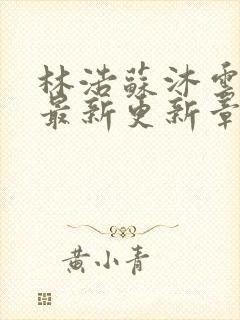 林浩蘇沐雲
最新更新章
黃小青